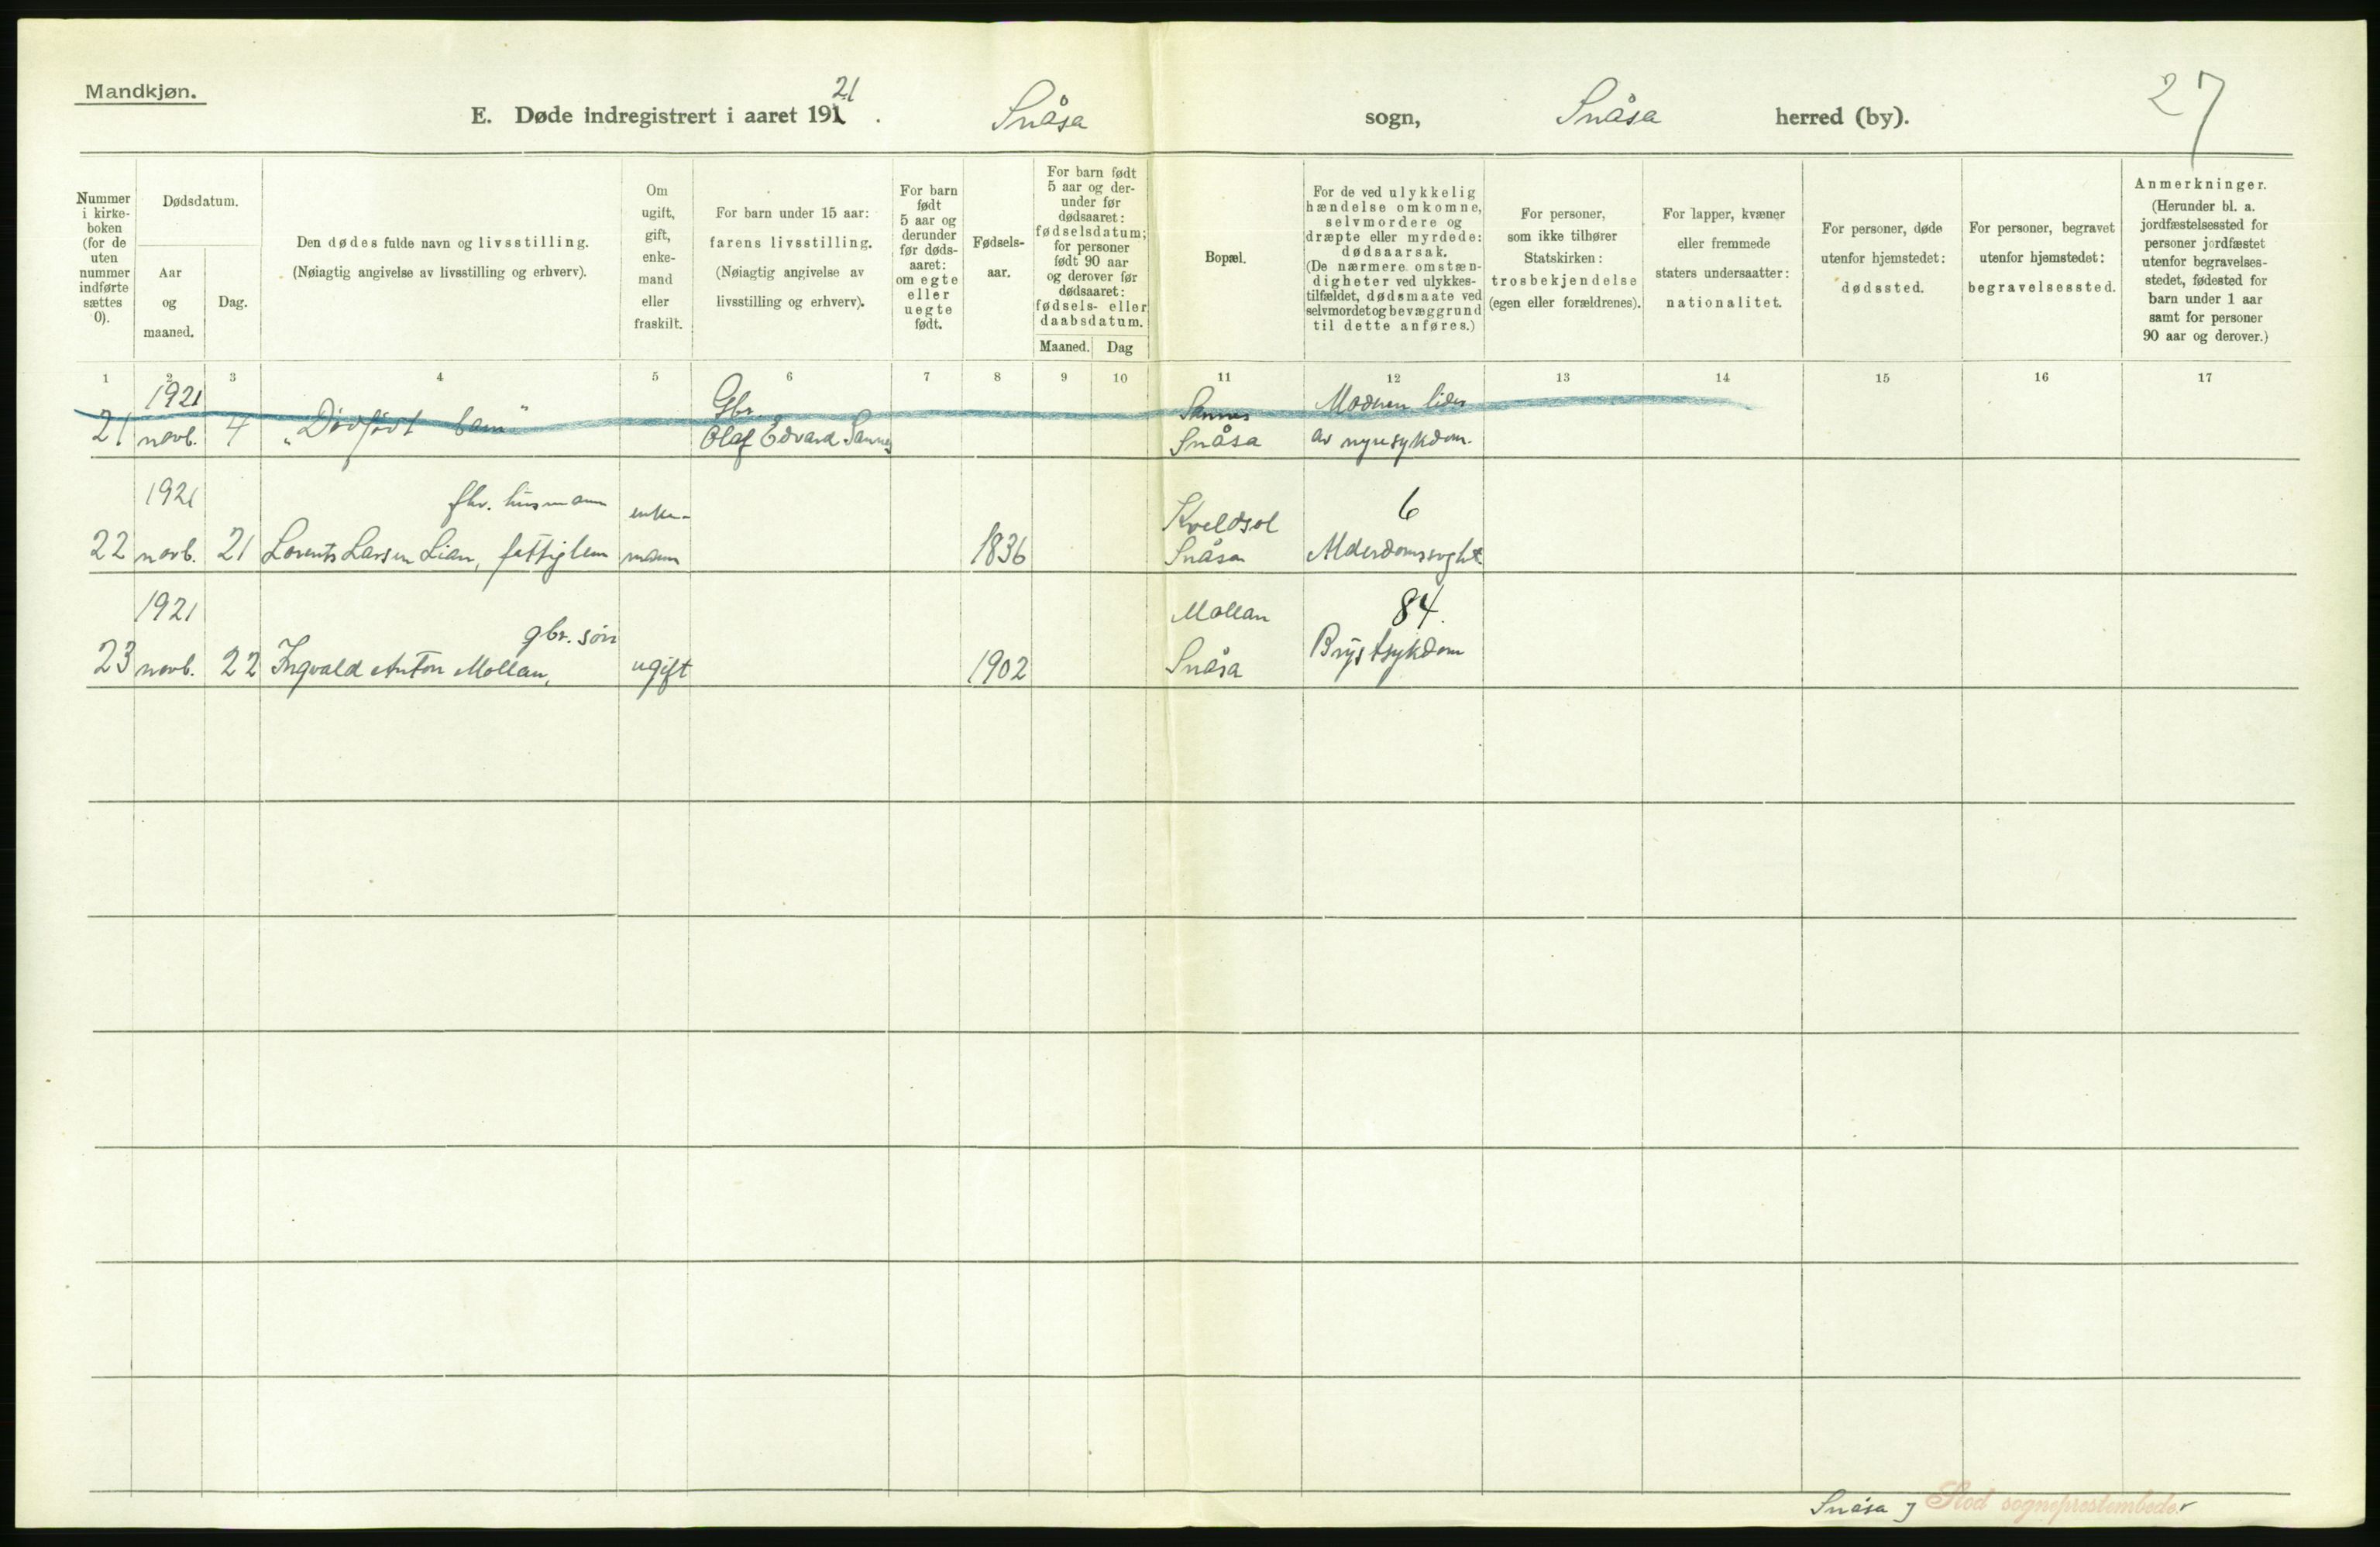 Mandkjøn.
E. Døde indregistrert i aaret 1921. Snåsa sogn, Snåsa herred (by). 27
Nummer i kirke-boken (for de uten nummer indførte sættes 0).
Dødsdatum.
Aar og maaned.
Dag.
Den dødes fulde navn og livsstilling.
(Nøiagtig angivelse av livsstilling og erhverv).
Om ugift, gift, enke-mand eller fraskilt.
For barn under 15 aar:
farens livsstilling.
(Nøiagtig angivelse av
livsstilling og erhverv).
For barn født 5 aar og derunder før døds-aaret: om egte eller uegte født.
Fødsels-aar.
For barn født
5 aar og der-
under før
dødsaaret:
fødselsdatum;
for personer
født 90 aar
og derover før
dødsaaret:
fødsels- eller
daabsdatum.
Maaned. Dag
Bopæl.
For de ved ulykkelig
hændelse omkomne,
selvmordere og
dræpte eller myrdede:
dødsaarsak.
(De nærmere omstæn-
digheter ved ulykkes-
tilfældet, dødsmaate ved
selvmordet og bevæggrund
til dette anføres.)
For personer,
som ikke tilhører
Statskirken:
trosbekjendelse
(egen eller forældrenes).
For lapper, kvæner
eller fremmede
staters undersaatter:
nationalitet.
For personer, døde
utenfor hjemstedet:
dødssted.
For personer, begravet
utenfor hjemstedet:
begravelsessted.
Anmerkninger.
(Herunder bl. a.
jordfæstelsessted for
personer jordfæstet
utenfor begravelses-
stedet, fødested for
barn under 1 aar
samt for personer
90 aar og derover.)
1 2 3 4 5 6 7 8 9 10 11 12 13 14 15 16 17
1921 Gbr. Sannes Moderen lider
21 novb. 4 „Dødfødt barn" Olaf Edvard Sannes Snåsa av nyresykdom.
1921 fhv. husmann enke- Kveldsol 6
22 novb. 21 Lorents Larsen Lian, fattiglem mann 1836 Snåsa Alderdomssvght
1921 gbr. søn Mollan 84.
23 novb. 22 Ingvald Anton Mollan, ugift 1902 Snåsa Brystsykdom
Snåsa og Stod sogneprestembeder